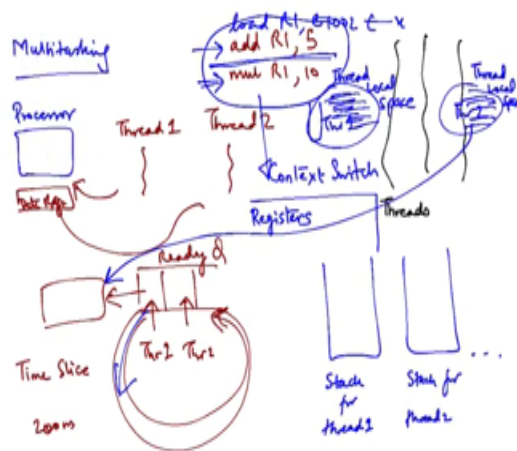 Multitasking
load R1, @1002 ← x
add R1, 5
mul R1, 10
Thread Local Space
Thr 1
Thread Local Space
Processor
Thread 1
Thread 2
Context Switch
Registers
Threads
Ready Q
Thr 1
Thr 2
Time Slice
200ms
Stack for thread 1
Stack for thread 2
...